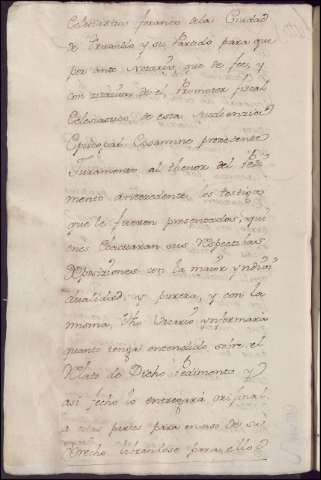 Eclesiastico foraneo de la Ciudad
de Truxillo y su Partido para que
por ante Notario, que de fee, y
con citacion de el Promotor fiscal
Eclesiastico, de esta Audiencia
Episcopal Examine precedente
Juramento al thenor del Pedi-
mento antecedente los testigos
que le fueren presentados, qui-
enes Evacuaran sus Respectibas
Deposiciones con la maior yndivi-
dualidad y pureza, y con la
misma, dho Vicario ynformará
quanto tenga entendido sobre el
Relato de Dicho Pedimento y
asi fecho lo entregará original
a partes para en uso de su
Drecho librandose para ello